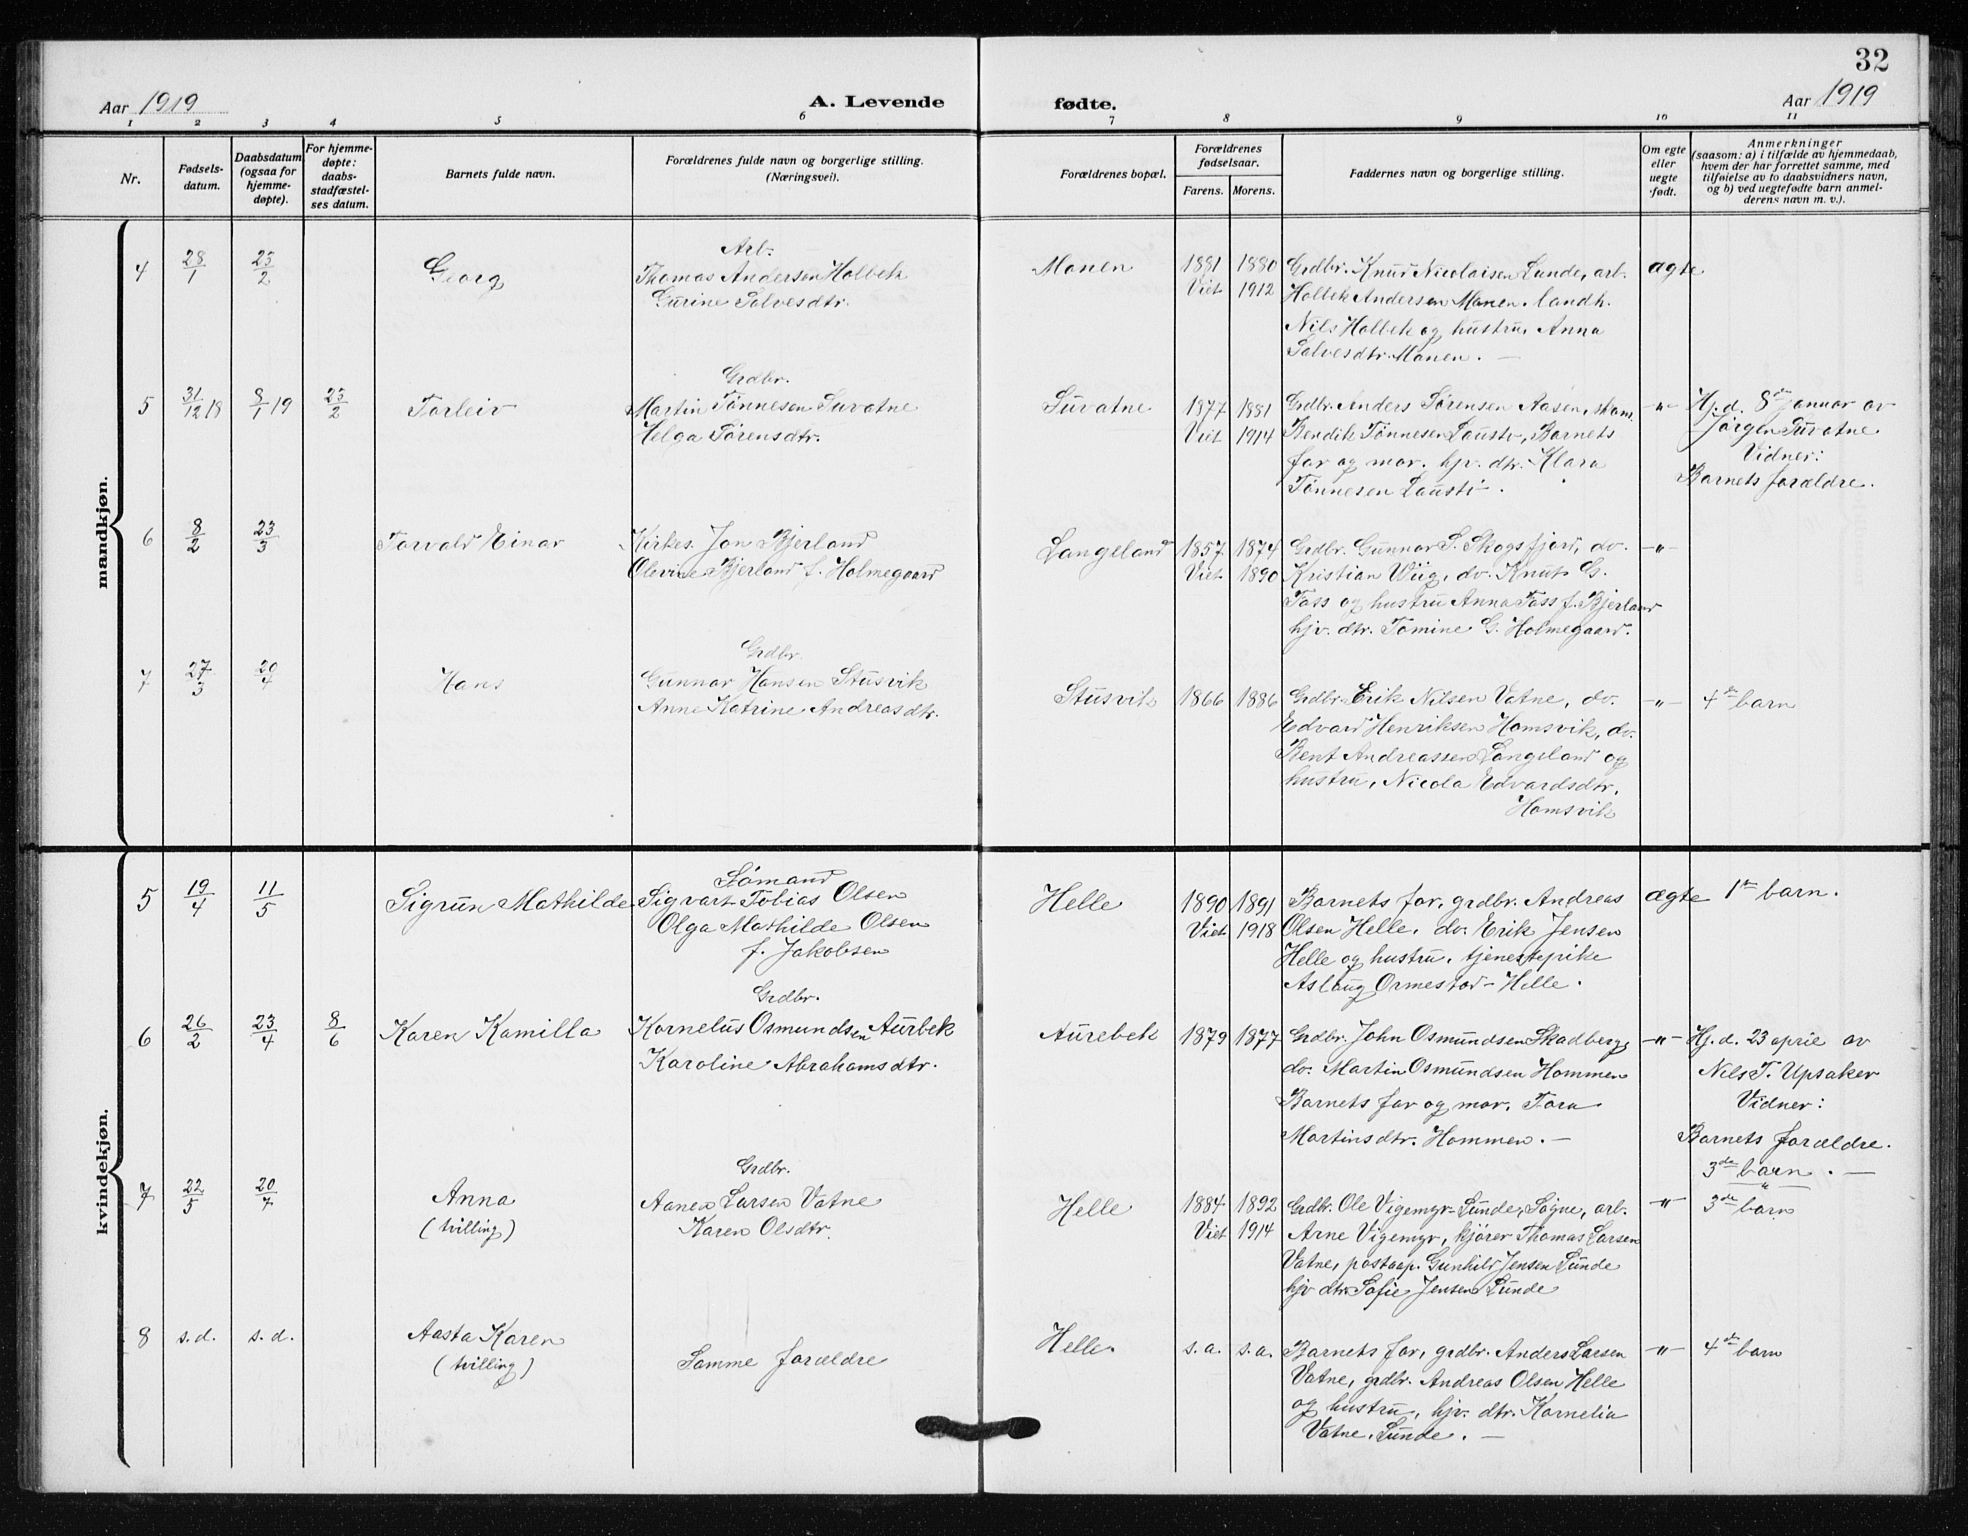 32
Aar 1919
A. Levende
fødte.
Aar 1919
1 2 3 4 5 6 7 8 9 10 11
Nr.
Fødsels-
datum.
Daabsdatum
(ogsaa for
hjemme-
døpte).
For hjemme-
døpte:
daabs-
stadfæstel-
ses datum.
Barnets fulde navn.
Forældrenes fulde navn og borgerlige stilling.
(Næringsvei).
Forældrenes bopæl.
Forældrenes
fødselsaar.
Farens. Morens.
Faddernes navn og borgerlige stilling.
Om egte
eller
uegte
født.
Anmerkninger
(saasom: a) i tilfælde av hjemmedaab,
hvem der har forrettet samme, med
tilføielse av to daabsvidners navn,
og b) ved uegtefødte barn anmel-
derens navn m. v.).
mandkjøn.
4
28/1
23/2
Georg
Arb.
Thomas Andersen Holbek
Gurine Salvesdtr.
Monen
1881 1880
Viet 1912
Grdbr. Knud Nicolaisen Lunde, arb.
Holbek Andersen Monen, landh.
Nils Holbek og hustru, Anna
Salvesdtr. Monen. —
ægte
5
31/12 18
8/1 19
23/2
Torleiv
Grdbr.
Martin Tønnesen Suvatne
Helga Sørensdtr.
Suvatne
1877 1881
Viet 1914
Grdbr. Anders Sørensen Aasen, skom.
Bendik Tønnesen Lausti, Barnets
far og mor, hjv. dtr. Klara
Tønnesen Lausti.
-"-
Hj. d. 8de januar av
Jørgen Suvatne
Vidner:
Barnets forældre.
6
8/2
23/3
Torvald Einar
Kirkes. Jon Bjerland
Olevine Bjerland f. Holmegaard
Langeland
1857 1874
Viet 1890
Grdbr. Gunnar S. Skogsfjord, do.
Kristian Wiig, do. Knut G.
Tass og hustru Anna Tass f. Bjerland
hjv. dtr. Tomine G. Holmegaard.
-"-
7
27/3
20/4
Hans
Grdbr.
Gunnar Hansen Stusvik
Anne Katrine Andreasdtr.
Stusvik
1866 1886
Grdbr. Erik Nilsen Vatne, do.
Edvard Henriksen Homsvik, do.
Bent Andreassen Langeland og
hustru, Nicola Edvardsdtr.
Homsvik
-"-
4de barn
kvindekjøn.
5
19/4
11/5
Sigrun Mathilde
Sømand
Sigvart Tobias Olsen
Olga Mathilde Olsen
f. Jakobsen
Helle
1890 1891
Viet 1918
Barnets far, grdbr. Andreas
Olsen Helle, do. Erik Jensen
Helle og hustru, tjenestepike
Aslaug Ormestad - Helle.
ægte
1ste barn.
6
26/2
23/4
8/6
Karen Kamilla
Grdbr.
Kornelus Osmundsen Aurbek
Karoline Abrahamsdtr.
Aurebek
1879 1877
Grdbr. John Osmundsen Skadberg,
do. Martin Osmundsen Hommen
Barnets far og mor, Tora
Martinsdtr. Hommen. —
-"-
Hj. d. 23 april av
Nils T. Upsaker
Vidner:
Barnets forældre.
3de barn. —
7
22/5
20/7
Anna
(tvilling)
Grdbr.
Aanen Larsen Vatne
Karen Olsdtr.
Helle
1884 1892
Viet 1914
Grdbr. Ole Vigemyr - Lunde, Søgne, arb.
Arne Vigemyr, kjører Thomas Larsen
Vatne, postaap. Gunhild Jensen Lunde
hjv dtr. Sofie Jensen Lunde
-"-
3de barn
8
s. d.
s. d.
Aasta Karen
(tvilling)
Samme forældre
Helle.
s. a. s. a.
Barnets far, grdbr. Anders Larsen
Vatne, grdbr. Andreas Olsen Helle
og hustru, hjv. dtr. Kornelia
Vatne, Lunde. —
-"-
4de barn